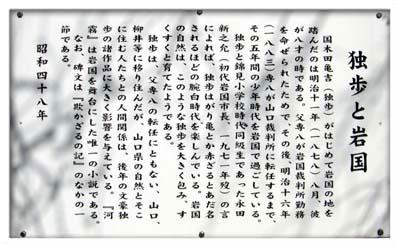 独歩と岩国
国木田亀吉（独歩）がはじめて岩国の地を
踏んだのは明治十一年（一八七八）八月、彼
が八才の時である。父専八が岩国裁判所勤務
を命ぜられたためで、その後、明治十六年
（一八八三）専八が山口裁判所に転任するまで、
その五年間の少年時代を岩国で過ごしている。
独歩と錦見小学校時代同級生であった永田
新之允（初代岩国市長、一九七一年歿）の言
によれば、独歩はがり亀とか赤ざるとあだ名
されるほどの腕白時代を楽しんでいる。岩国
の自然は、このような独歩を大きく包み、す
くすくと育てたようである。
独歩は、父専八の転任にともない、山口、
柳井等に移り住んだが、山口県の自然とそこ
に住む人たちとの人間関係は、後年の文豪独
歩の諸作品に大きく影響を与えている。『河
霧』は岩国を舞台にした唯一の小説である。
なお、碑文は『欺かざるの記』のなかの一
節である。
昭和四十八年